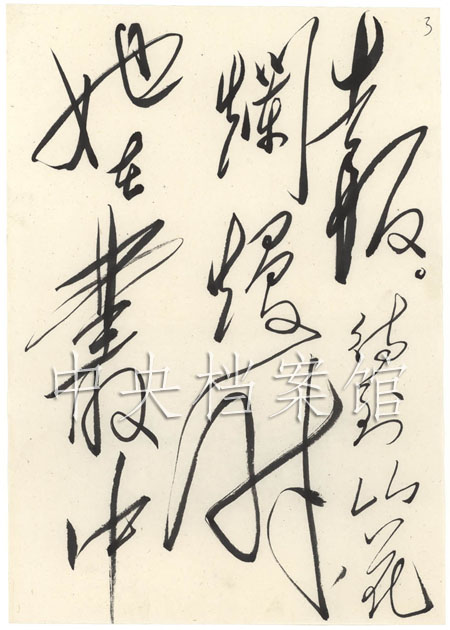 3
報。待到山花
爛熳時
她在叢中
中央档案馆